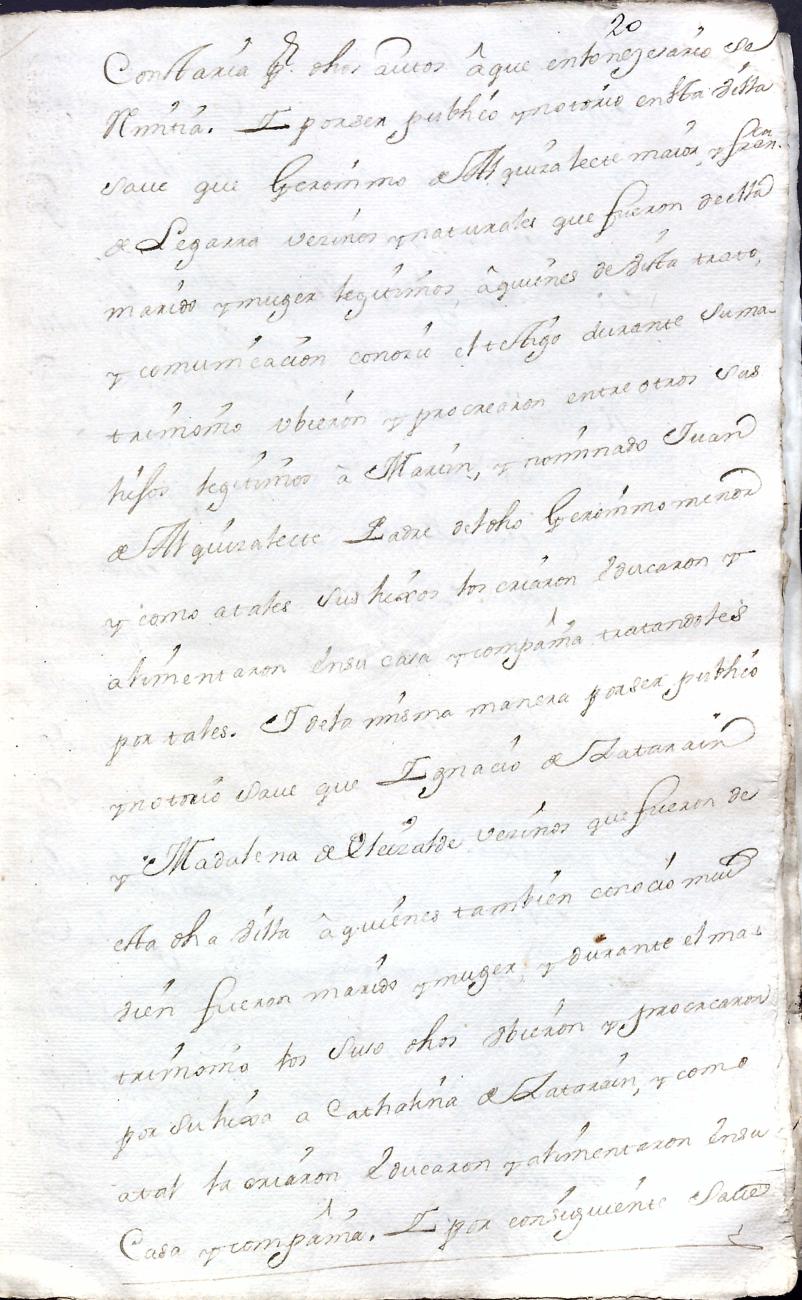 20
Constaria pr. dhos autos â que enlonezesario se
Rimitia. I porser publico ynotorio enesta Villa
save que Geronimo de Alquizalecte maior y Fran.ca
de Legarra vezinos ynaturales que fueron deella
marido ymuger legitimos, âquienes de vista trato,
y comunicacion conocio el testigo durante suma-
trimonio ubieron y procrearon entre otros sus
hisos legitimos â Marin, y nominado Juan
de Alquizalecte Padre deldho Geronimo menor
y como atales sus hixos los criaron educaron y
alimentaron ensu casa ycompañia tratandoles
por tales. I dela misma manera porser publico
ynotorio save que Ignacio de Zatarain
y Madalena de Eleizalde vezinos que fueron de
esta dha Villa âquienes tambien conocio mui
vien fueron marido ymuger, y durante el ma-
trimonio los suso dhos ubieron y procrearon
por su hixa a Cathalina de Zatarain, y como
atal la criaron educaron yalimentaron ensu
Casa ycompañia. I por consiguiente save